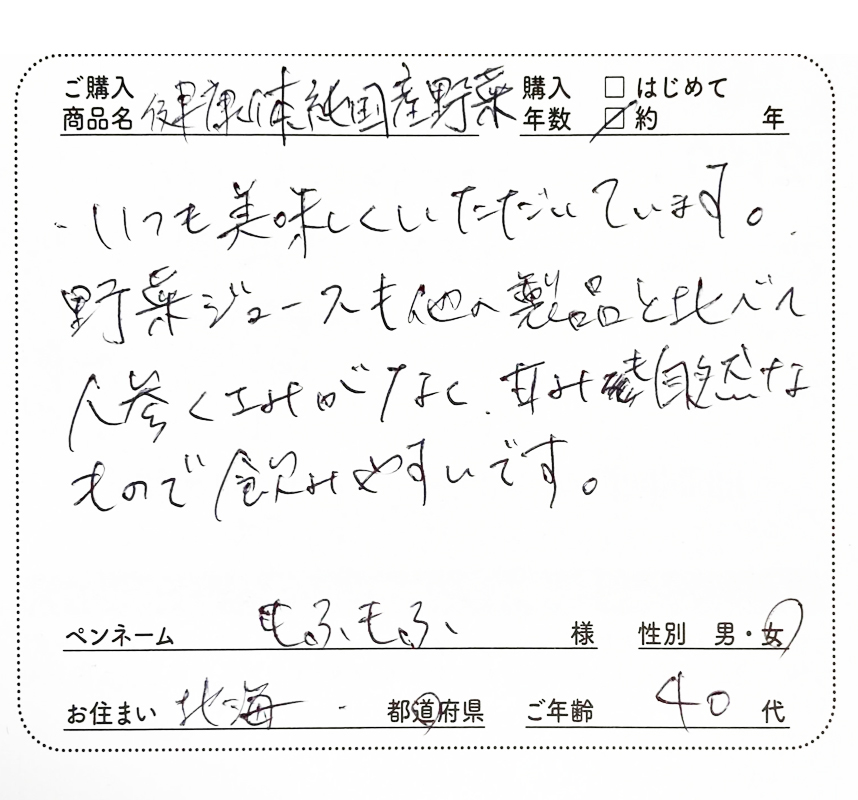 ご購入
商品名 健康体純国産野菜
購入 □ はじめて
年数 ☑ 約 年
いつも美味しくいただいています。
野菜ジュースも他の製品と比べて
人参くさみがなく、甘みも自然な
もので飲みやすいです。
ペンネーム もふもふ 様 性別 男・女
お住まい 北海 都道府県 ご年齢 40 代